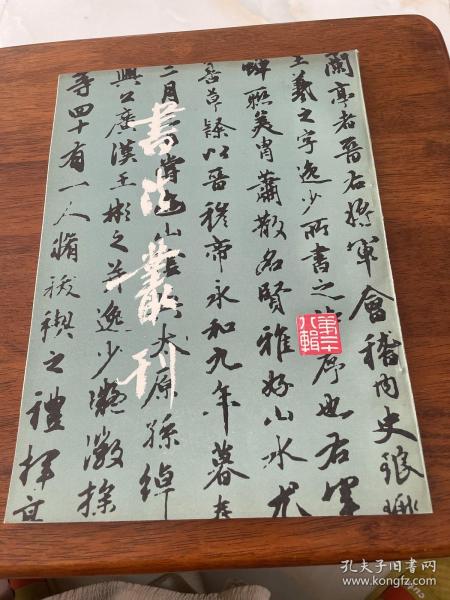 蘭亭者晉右將軍會稽內史琅琊
王羲之字逸少所書之詩序也右軍
蟬聯美胄蕭散名賢雅好山水尤
善草隸以晉穆帝永和九年暮春
三月 遊山 太原孫綽
興公廣漢王彬之并逸少凝徽操
等四十有一人脩祓禊之禮揮毫
書法叢刊
第二十
八輯
孔夫子旧书网
www.kongfz.com